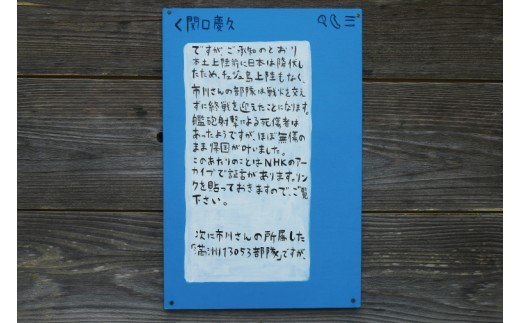 く関口慶久
ですがご承知のとおり
本土上陸前に日本は降伏し
たため、チェジュ島上陸もなく、
市川さんの部隊は戦火を交え
ずに終戦を迎えたことになります。
艦砲射撃による死傷者は
あったようですが、ほぼ無傷の
まま帰国が叶いました。
このあたりのことはNHKのアー
カイブで証言があります。リン
クを貼っておきますので、ご覧
下さい。
次に市川さんの所属した
「満洲第13053部隊」ですが、